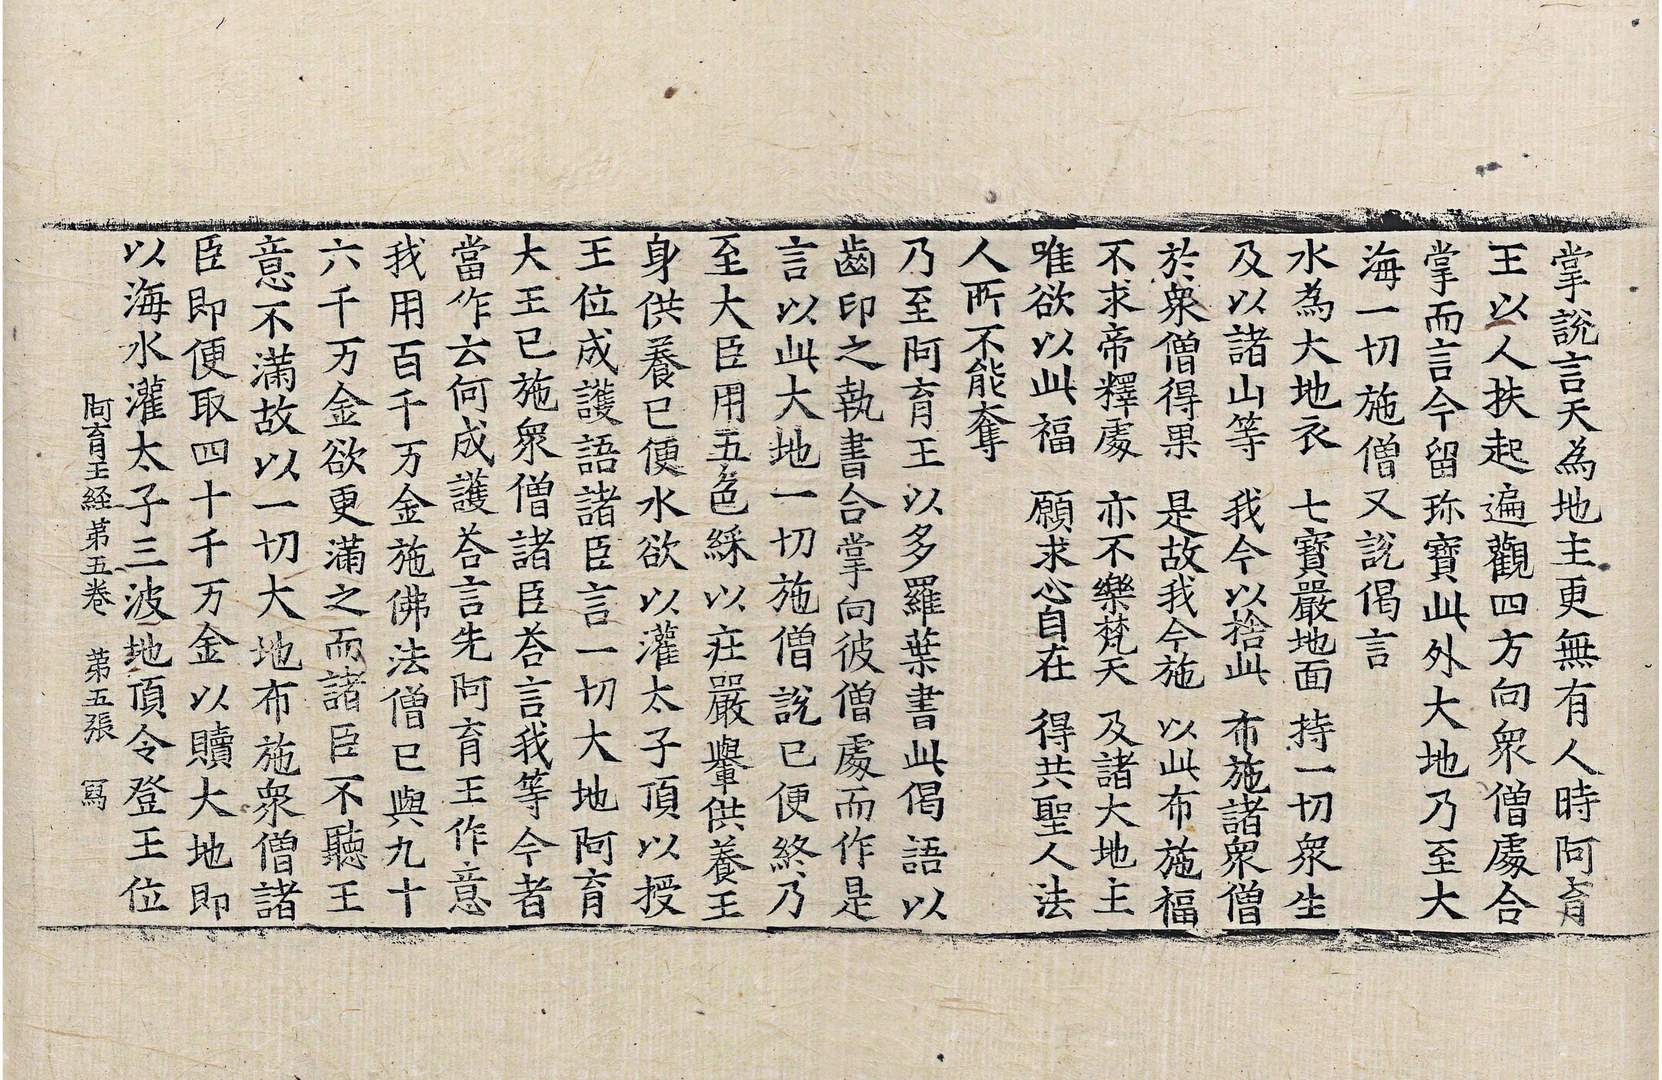 掌說言天為地主更無有人時阿育
王以人扶起遍觀四方向眾僧處合
掌而言今留珎寶此外大地乃至大
海一切施僧又說偈言
水為大地衣　七寶嚴地面　持一切眾生
及以諸山等　我今以捨此　布施諸眾僧
於眾僧得果　是故我今施　以此布施福
不求帝釋處　亦不樂梵天　及諸大地主
唯欲以此福　願求心自在　得共聖人法
人所不能奪
乃至阿育王以多羅葉書此偈語以
齒印之執書合掌向彼僧處而作是
言以此大地一切施僧說已便終乃
至大臣用五色綵以莊嚴轝供養王
身供養已便水欲以灌太子頂以授
王位成護語諸臣言一切大地阿育
大王已施眾僧諸臣荅言我等今者
當作云何成護荅言先阿育王作意
我用百千万金施佛法僧已與九十
六千万金欲更滿之而諸臣不聽王
意不滿故以一切大地布施眾僧諸
臣即便取四十千万金以贖大地即
阿育王經第五卷　第五張　寫
以海水灌太子三波地頂令登王位